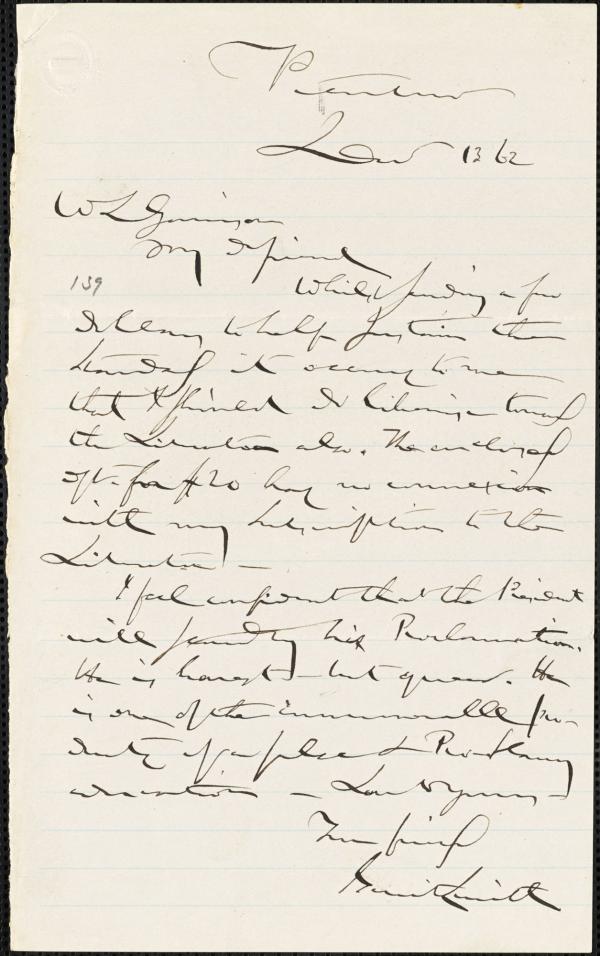 Peterboro
Dec 13 62
W L Garrison
My d friend
139
Whilst sending a few
dollars to help sustain the
Standard it occurs to me
that I should do likewise toward
the Liberator also. The enclosed
dft. for $20 has no connexion
with my subscription to the
Liberator —
I feel confident that the President
will stand by his Proclamation.
He is honest — but queer. He
is one of the innumerable pro-
ducts of a false & Proslavery
education — Love to yours —
Your friend
Gerrit Smith